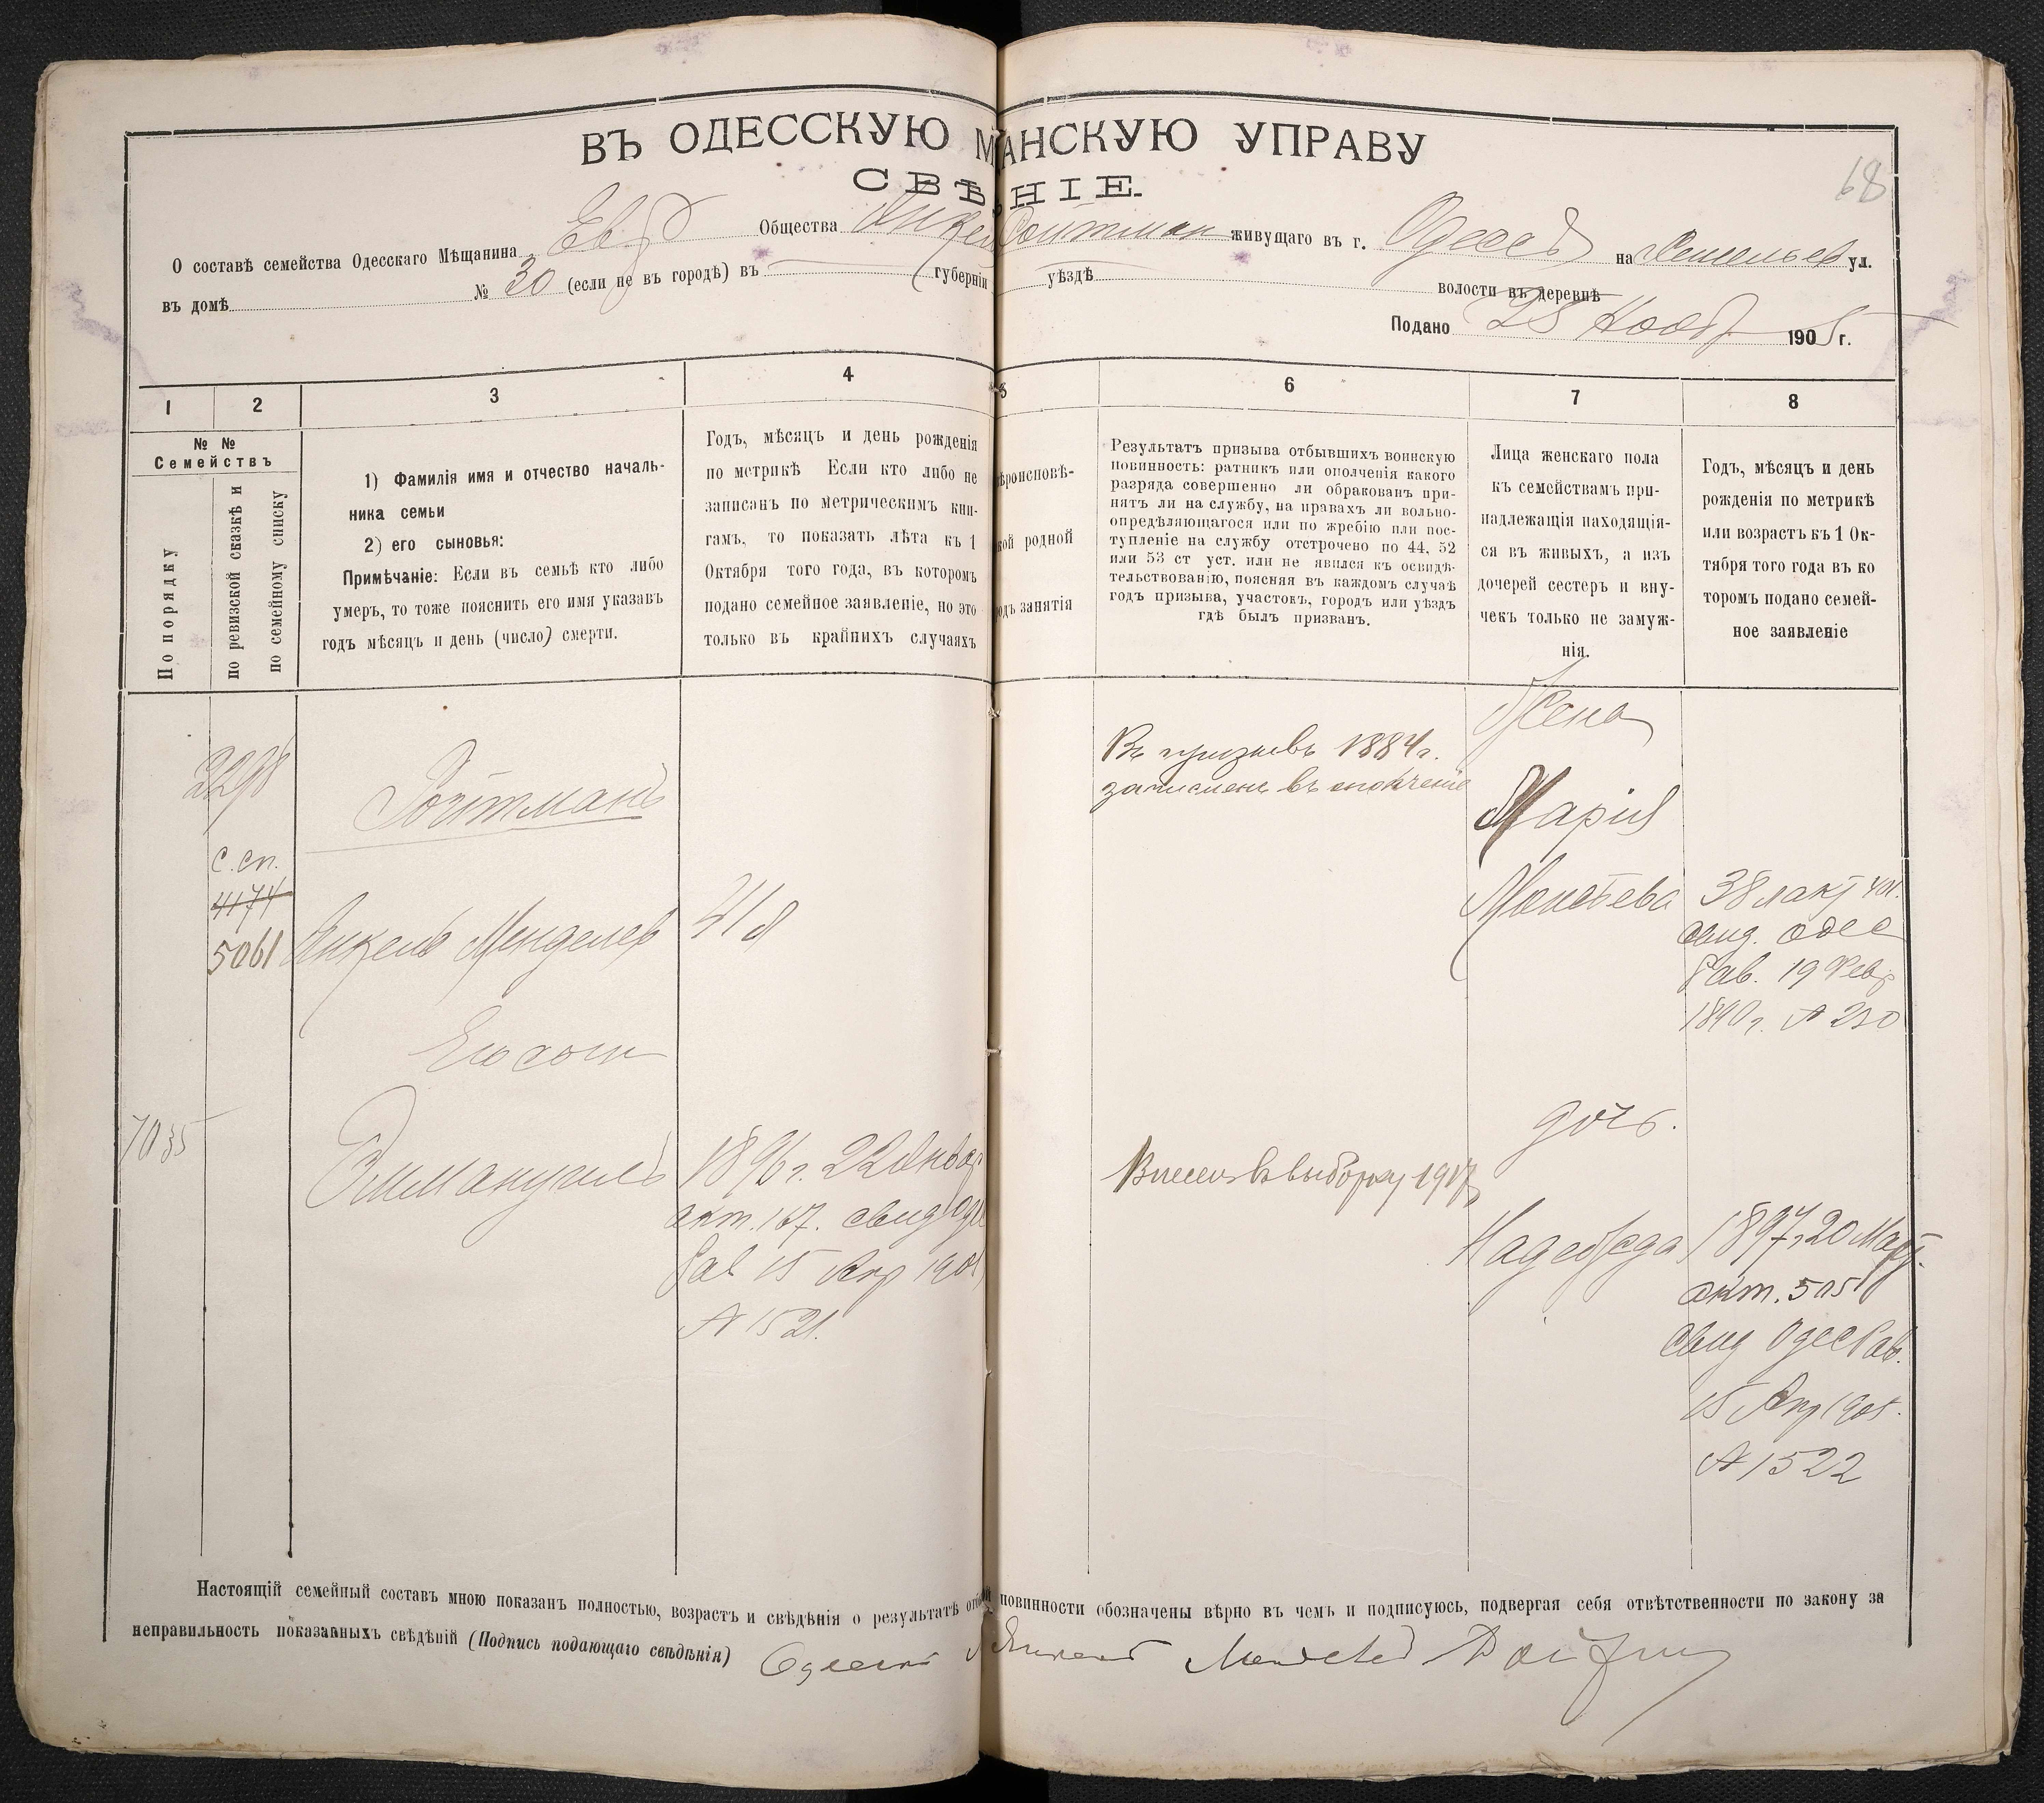 68
ВЪ ОДЕССКУЮ М АНСКУЮ УПРАВУ
СВѢ НІЕ.
О составѣ семейства Одесскаго Мѣщанина Евр Общества Янкел Ройтман живущаго въ г. Одессѣ на ул.
въ домѣ № 30 (если не въ городѣ) въ губерніи уѣздѣ волости въ деревнѣ
Подано 28 Нояб 1905 г.
1 2 3 4 5 6 7 8
№ №
Семействъ
По порядку
по ревизской сказкѣ и
по семейному списку
1) Фамилія имя и отчество началь-
ника семьи
2) его сыновья:
Примѣчаніе: Если въ семьѣ кто либо
умеръ, то тоже пояснить его имя указавъ
годъ мѣсяцъ и день (число) смерти.
Годъ, мѣсяцъ и день рожденія
по метрикѣ Если кто либо не
записанъ по метрическимъ кни-
гамъ, то показать лѣта къ 1
Октября того года, въ которомъ
подано семейное заявленіе, но это
только въ крайнихъ случаяхъ
ѣроисповѣ-
кой родной
одъ занятія
Результатъ призыва отбывшихъ воинскую
повинность: ратникъ или ополченія какого
разряда совершенно ли обракованъ при-
нятъ ли на службу, на правахъ ли вольно-
опредѣляющагося или по жребію или пос-
тупленіе на службу отстрочено по 44, 52
или 53 ст уст. или не явился къ освидѣ-
тельствованію, поясняя въ каждомъ случаѣ
годъ призыва, участокъ, городъ или уѣздъ
гдѣ былъ призванъ.
Лица женскаго пола
къ семействамъ при-
надлежащія находящія-
ся въ живыхъ, а изъ
дочерей сестеръ и вну-
чекъ только не замуж-
нія.
Годъ, мѣсяцъ и день
рожденія по метрикѣ
или возрастъ къ 1 Ок-
тября того года въ ко
торомъ подано семей-
ное заявленіе
2298
с. сп.
4174
5061
Ройтманъ
Янкель Менделев
41 г
Въ призывъ 1884 г.
зачисленъ въ ополченіе
Жена
Марія
Моисѣева
38 л акт 401.
свид. Одес
Рав. 19 Февр
1890 г. № 230
Его сын
7035
Эммануилъ
1896 г. 22 Января
акт. 167. свид Оде
Рав 15 Апр 1905
№ 1521.
Внесенъ въ выборку 1917
дочь.
Надежда
1897 г 20 Март.
акт. 505
Свид Одес Рав.
15 Апр 1905.
№ 1522
Настоящій семейный составъ мною показанъ полностью, возрастъ и свѣдѣнія о результатѣ отб ой повинности обозначены вѣрно въ чемъ и подписуюсь, подвергая себя отвѣтственности по закону за
неправильность показанныхъ свѣдѣній (Подпись подающаго свѣдѣнія) Одескі Янкель Мендел Ройтман